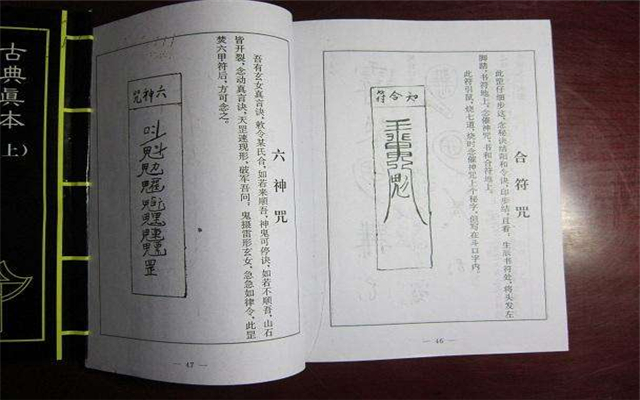 合符咒
此罡仔细步送,念秘诀结阳和合诀,印步结,真看,生后书符处,将头发左
脚踏,书符地上,念催神咒,书和合符地上。
此符引鼠,烧七道,烧时念催神咒上个秘字,但写在斗口字内。
和合符
— 46 —
六神咒
吾有玄女真言诀,敕令某氏食,如若来顺吾,神鬼可停诀,如若不顺吾,山石
皆开裂,念动真言诀,天罡速现形,破军吾问,鬼摄雷形玄女,急急如律令,此罡
焚六甲符后,方可念之。
六神咒
魁
罡
— 47 —
古典真本
上)